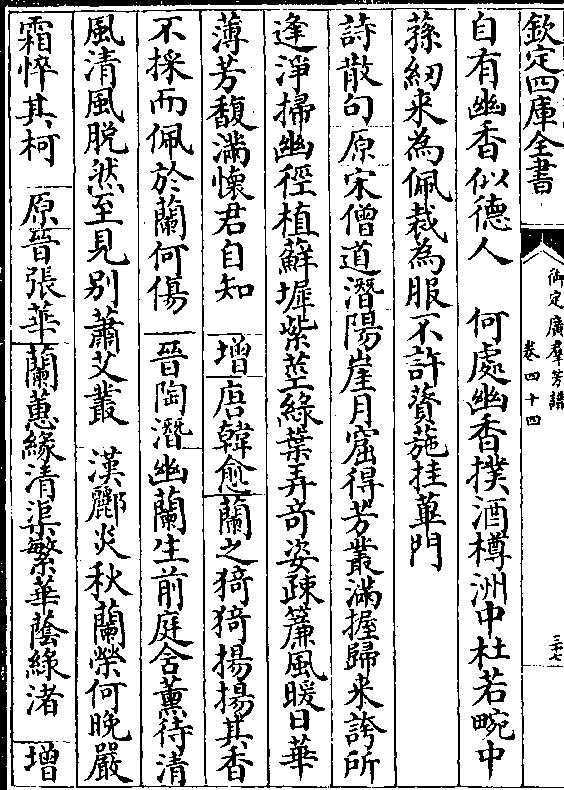 欽定四庫全書
御定廣羣芳譜
卷四十四
三十七
自有幽香似德人　何處幽香撲酒樽洲中杜若畹中
蓀紉来為佩裁為服不許薋葹挂蓽門
詩散句原宋僧道潛陽崖月窟得芳叢滿握歸来誇所
逢淨掃幽徑植蘚墀紫莖綠葉弄奇姿疎簾風暖日華
薄芳馥滿懷君自知　增唐韓愈蘭之猗猗揚揚其香
不採而佩於蘭何傷　晉陶潛幽蘭生前庭含薰待清
風清風脱然至見别蕭艾叢　漢酈炎秋蘭榮何晚嚴
霜悴其柯　原晉張華蘭蕙緣清渠繁華蔭綠渚　增